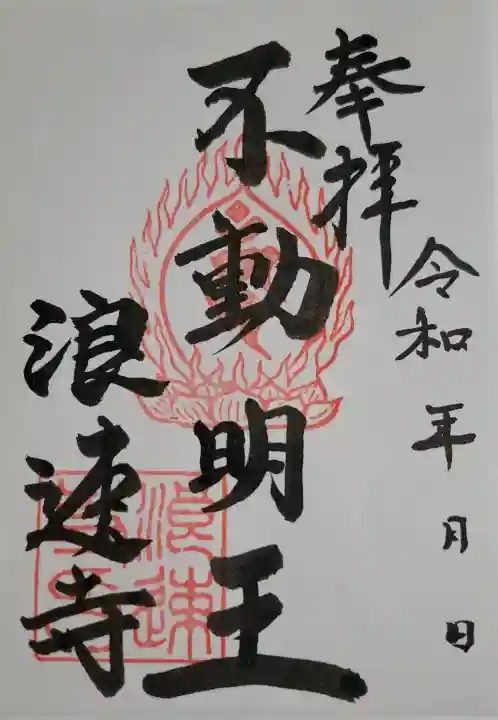 奉拝
令和 年 月 日
不動明王
浪速寺
浪速
寺